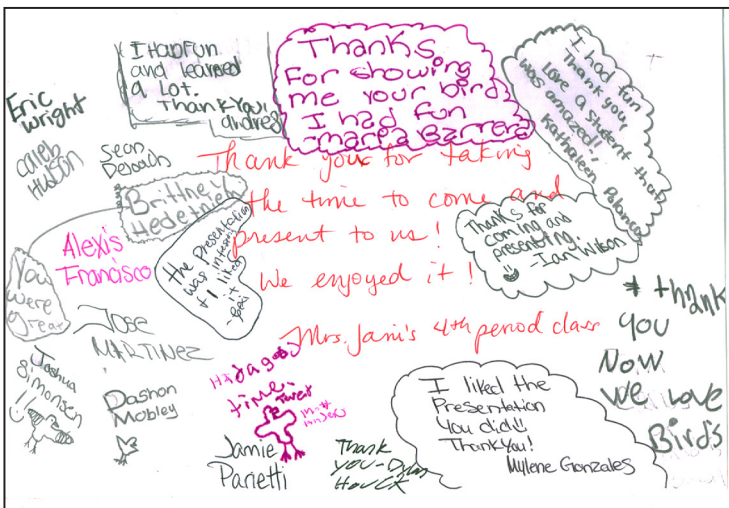 I HAD FUN
and learned
a lot.
Thank You!
andres
Thanks
For showing
me your birds
I had fun
-maria Barrera
I had fun
Thank you,
Love a student that
was amazed!!
Kathaleen Polanco
Eric
wright
Caleb
Hudson
Sean
Deloach
Brittney
Hedetniemi
Thank you for taking
the time to come and
present to us!
We enjoyed it!
Mrs. Jani's 4th period class
Thanks for
coming and
presenting.
-Ian Wilson
The Presentation
was interesting
I liked
it
Alexis
Francisco
You
were
great
Jose
MARTINEZ
Joshua
Simonsen
!!
Dashon
Mobley
Had a good
time.
Tweet
Jamie
Parietti
Thank
YOU-Dylan
Houck
I liked the
Presentation
You did!!
ThankYou!
Mylene Gonzales
thank
you
Now
we Love
Birds